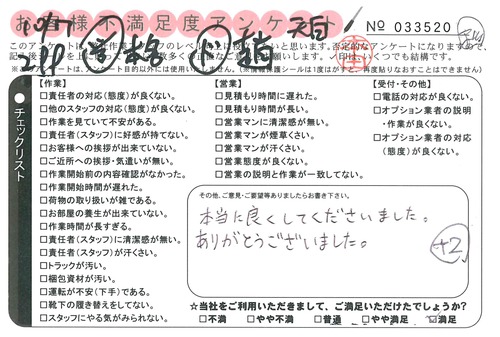 お客様不満足度アンケート
No 033520
チェックリスト
【作業】
□責任者の対応(態度)が良くない。
□他のスタッフの対応(態度)が良くない。
□作業を見ていて不安がある。
□責任者(スタッフ)に好感が持てない。
□お客様への挨拶が出来ていない。
□ご近所への挨拶・気遣いが無い。
□作業開始前の内容確認がなかった。
□作業開始時間が遅れた。
□荷物の取り扱いが雑である。
□お部屋の養生が出来ていない。
□作業時間が長すぎる。
□責任者(スタッフ)に清潔感が無い。
□責任者(スタッフ)が汗臭い。
□トラックが汚い。
□梱包資材が汚い。
□運転が不安(下手)である。
□靴下の履き替えをしてない。
□スタッフにやる気がみられない。
【営業】
□見積もり時間に遅れた。
□見積もり時間が長い。
□営業マンに清潔感が無い。
□営業マンが煙草くさい。
□営業マンが汗くさい。
□営業態度が良くない。
□営業の説明と作業が一致してない。
【受付・その他】
□電話の対応が良くない。
□オプション業者の説明
・作業が良くない。
□オプション業者の対応
(態度)が良くない。
その他、ご意見・ご要望等ありましたらお書き下さい。
本当に良くしてくださいました。
ありがとうございました。
+2
☆当社をご利用いただきまして、ご満足いただけたでしょうか?
□不満 □やや不満 □普通 □やや満足 □満足